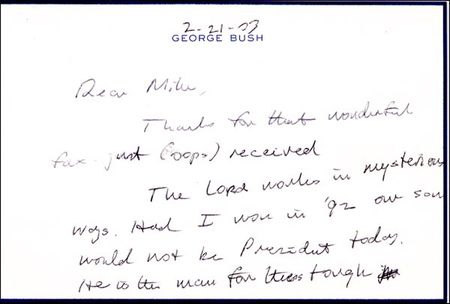 2-21-03
GEORGE BUSH
Dear Mike,
Thanks for that wonderful
fax - just (oops) received
The Lord works in mysterious
ways. Had I won in '92 our son
would not be President today.
He is the man for these tough